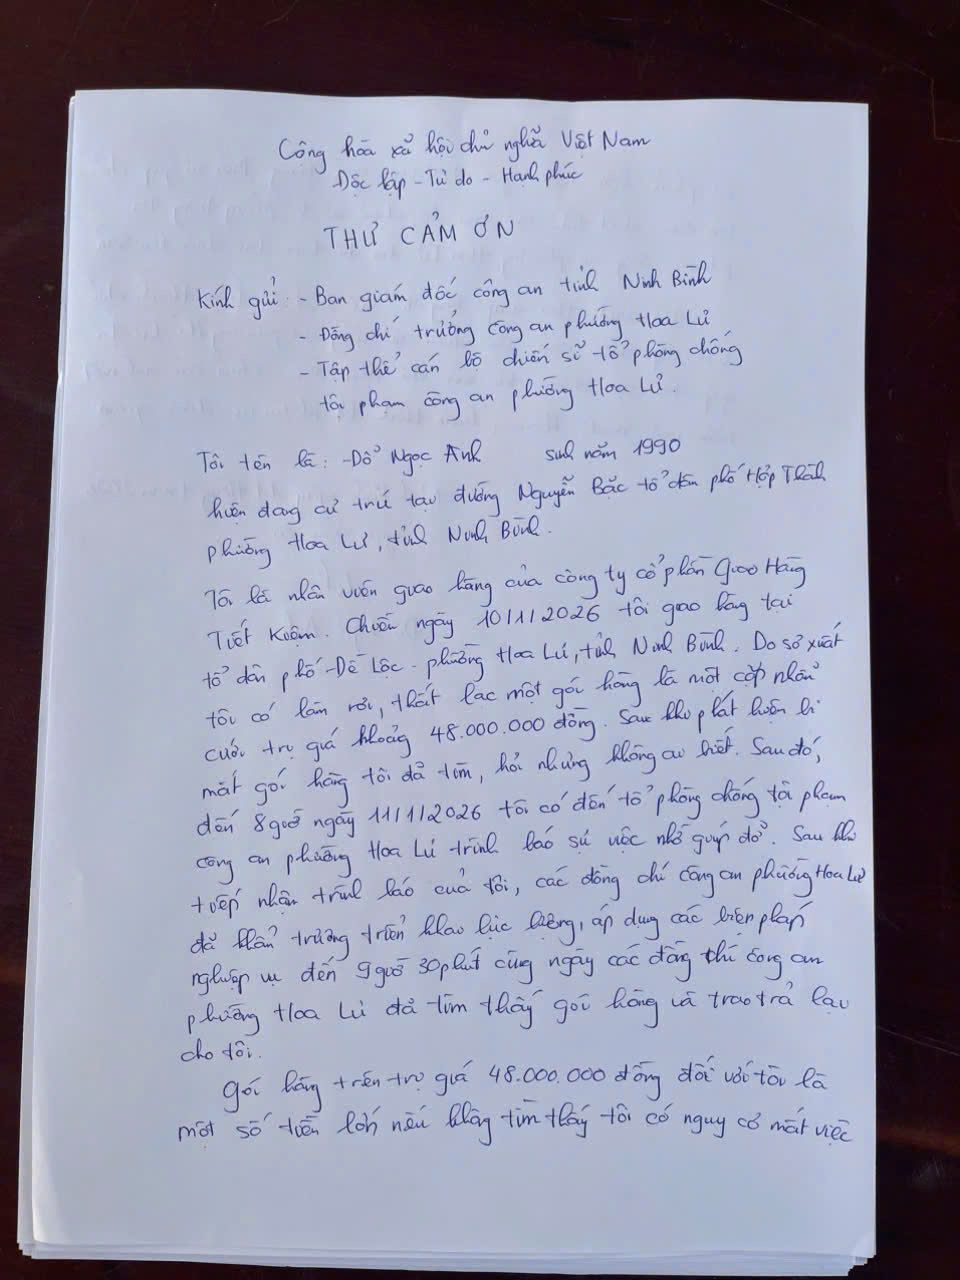 Cộng hòa xã hội chủ nghĩa Việt Nam
Độc lập - Tự do - Hạnh phúc
THƯ CẢM ƠN
Kính gửi: - Ban giám đốc công an tỉnh Ninh Bình
- Đồng chí trưởng công an phường Hoa Lư
- Tập thể cán bộ chiến sĩ tổ phòng chống
tội phạm công an phường Hoa Lư.
Tôi tên là: -Đỗ Ngọc Anh sinh năm 1990
hiện đang cư trú tại đường Nguyễn Bặc tổ dân phố Hợp Thành
phường Hoa Lư, tỉnh Ninh Bình.
Tôi là nhân viên giao hàng của công ty cổ phần Giao Hàng
Tiết Kiệm. Chiều ngày 10/1/2026 tôi giao hàng tại
tổ dân phố -Đế Lộc - phường Hoa Lư, tỉnh Ninh Bình. Do sơ xuất
tôi có làm rơi, thất lạc một gói hàng là một cặp nhẫn
cưới trị giá khoảng 48.000.000 đồng. Sau khi phát hiện bị
mất gói hàng tôi đã tìm, hỏi nhưng không ai biết. Sau đó,
đến 8 giờ ngày 11/1/2026 tôi có đến tổ phòng chống tội phạm
công an phường Hoa Lư trình báo sự việc nhờ giúp đỡ. Sau khi
tiếp nhận trình báo của tôi, các đồng chí công an phường Hoa Lư
đã khẩn trương triển khai lực lượng, áp dụng các biện pháp
nghiệp vụ đến 9 giờ 30 phút cùng ngày các đồng chí công an
phường Hoa Lư đã tìm thấy gói hàng và trao trả lại
cho tôi.
Gói hàng trên trị giá 48.000.000 đồng đối với tôi là
một số tiền lớn nếu không tìm thấy tôi có nguy cơ mất việc